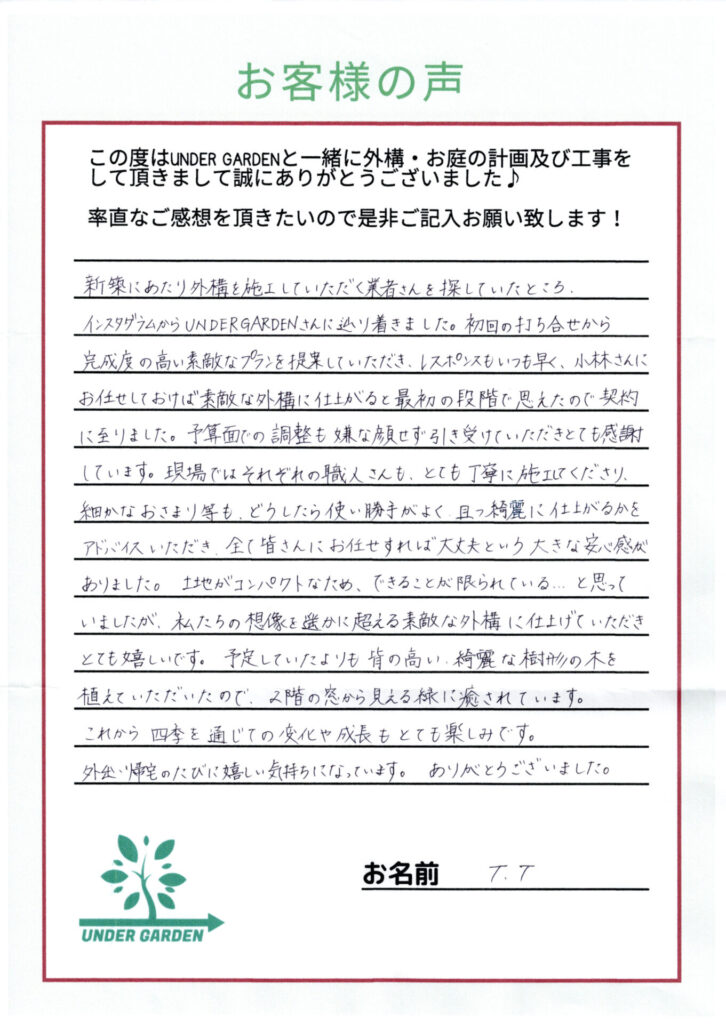 お客様の声
この度はUNDER GARDENと一緒に外構・お庭の計画及び工事を
して頂きまして誠にありがとうございました♪
率直なご感想を頂きたいので是非ご記入お願い致します！
新築にあたり外構を施工していただく業者さんを探していたところ、
インスタグラムからUNDERGARDENさんに辿り着きました。初回の打ち合せから
完成度の高い素敵なプランを提案していただき、レスポンスもいつも早く、小林さんに
お任せしておけば素敵な外構に仕上がると最初の段階で思えたので契約
に至りました。予算面での調整も嫌な顔せず引き受けていただきとても感謝
しています。現場ではそれぞれの職人さんも、とても丁寧に施工してくださり、
細かなおさまり等も、どうしたら使い勝手がよく、且つ綺麗に仕上がるかを
アドバイスいただき、全て皆さんにお任せすれば大丈夫という大きな安心感が
ありました。土地がコンパクトなため、できることが限られている…と思って
いましたが、私たちの想像を遥かに超える素敵な外構に仕上げていただき
とても嬉しいです。予定していたよりも背の高い、綺麗な樹形の木を
植えていただいたので、2階の窓から見える緑に癒されています。
これから四季を通じての変化や成長もとても楽しみです。
外出や帰宅のたびに嬉しい気持ちになっています。ありがとうございました。
お名前 T.T
UNDER GARDEN